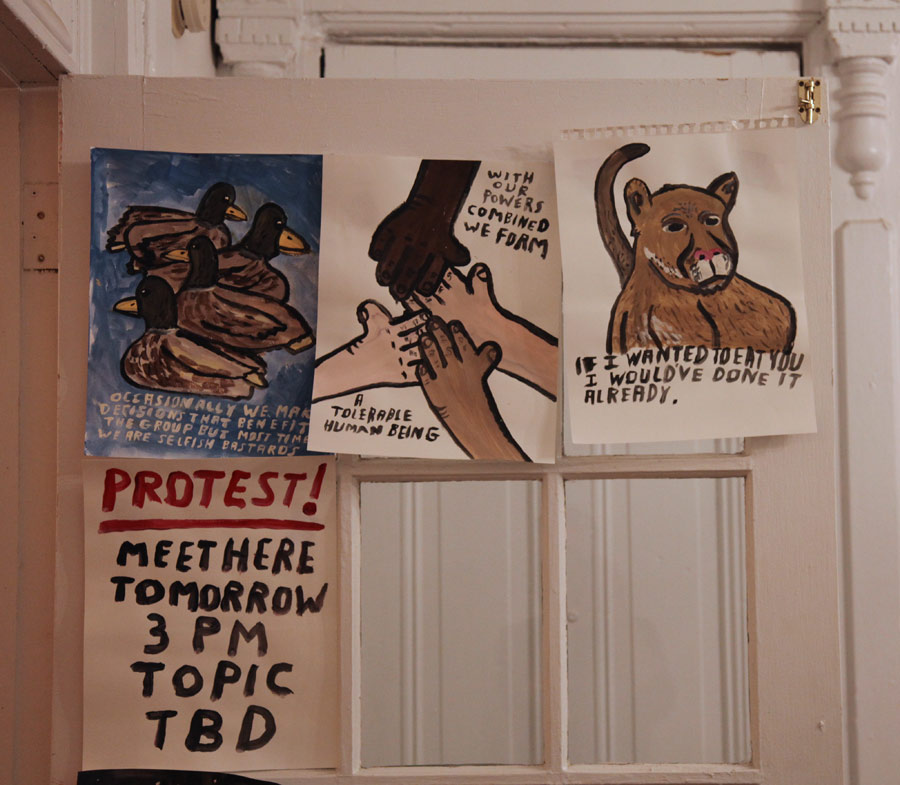 OCCASIONALLY WE MAK
DECISIONS THAT BENEFIT
THE GROUP BUT MOST TIME
WE ARE SELFISH BASTARDS
WITH
OUR
POWERS
COMBINED
WE FORM
A
TOLERABLE
HUMAN BEING
IF I WANTED TO EAT YOU
I WOULD'VE DONE IT
ALREADY.
PROTEST!
MEET HERE
TOMORROW
3 PM
TOPIC
TBD